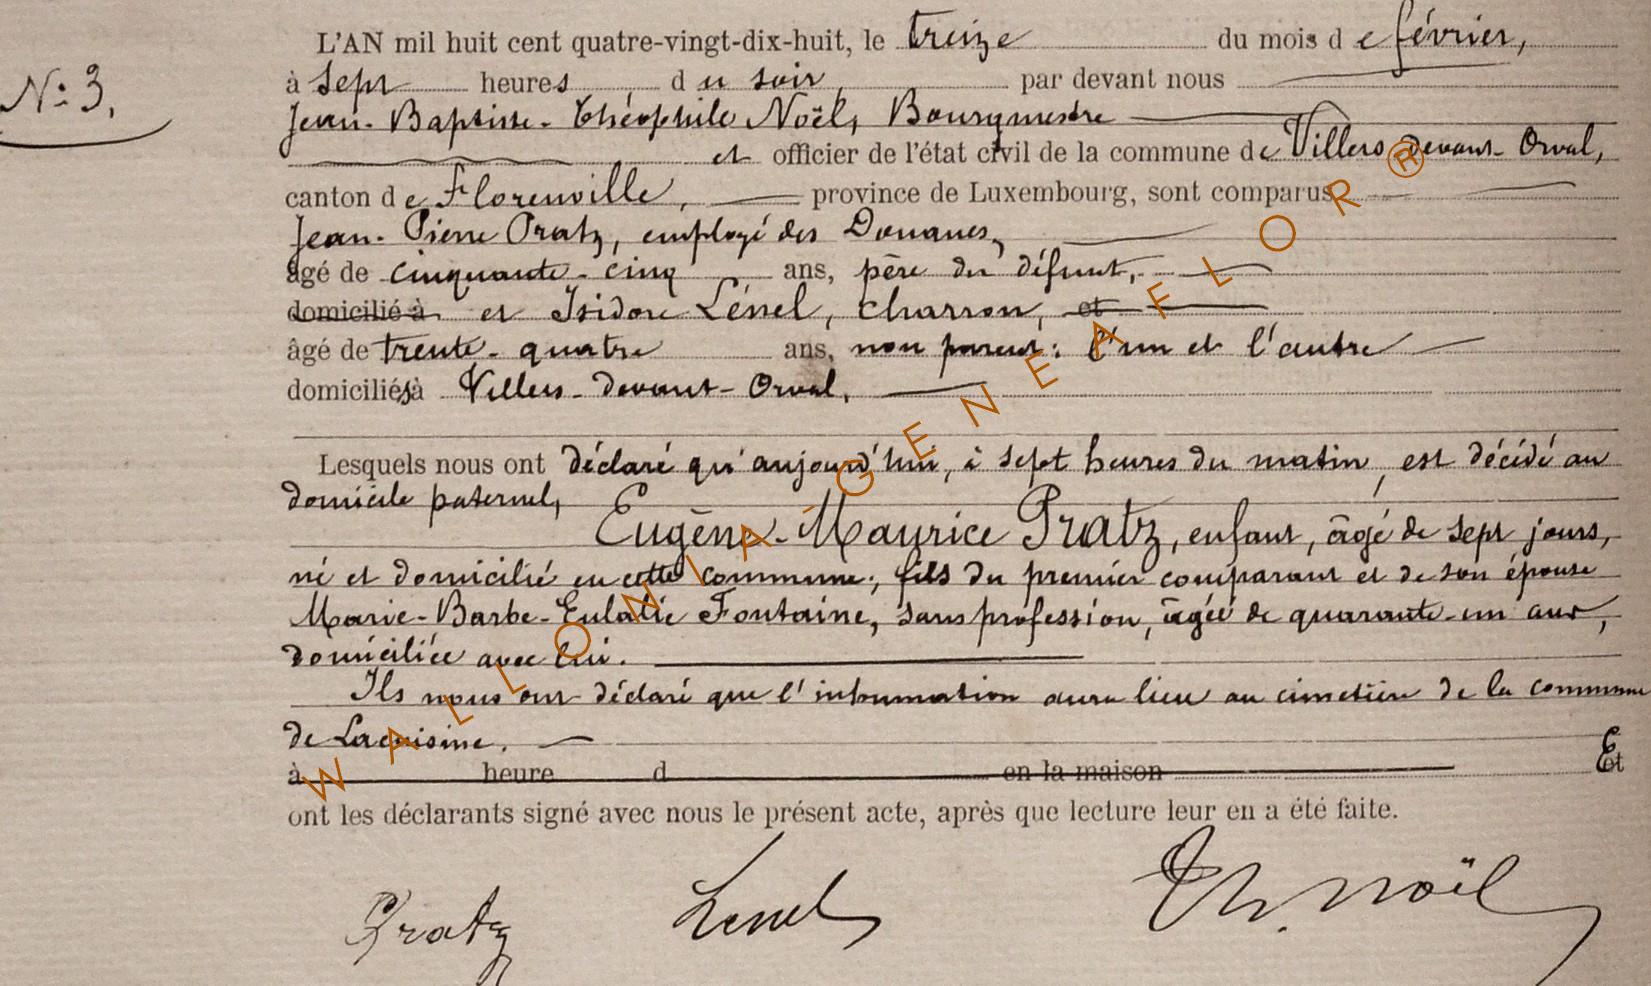 N° 3.
L'AN mil huit cent quatre-vingt-dix-huit, le treize du mois de février,
à sept heures, du soir, par devant nous
Jean-Baptiste-Théophile Noël, Bourgmestre
et officier de l'état civil de la commune de Villers-devant-Orval,
canton de Florenville, province de Luxembourg, sont comparus
Jean-Pierre Pratz, employé des Douanes,
âgé de cinquante-cinq ans, père du défunt,
domicilié à et Isidore Lénel, charron, et
âgé de trente-quatre ans, non parent: l'un et l'autre
domiciliés à Villers-devant-Orval,
Lesquels nous ont déclaré qu'aujourd'hui, à sept heures du matin, est décédé au
domicile paternel,
Eugène-Maurice Pratz, enfant, âgé de sept jours,
né et domicilié en cette commune, fils du premier comparant et de son épouse
Marie-Barbe-Eulalie Fontaine, sans profession, âgée de quarante-un ans,
domiciliée avec lui.
Ils nous ont déclaré que l'inhumation aura lieu au cimetière de la commune
de Lacuisine.
à heure d en la maison Et
ont les déclarants signé avec nous le présent acte, après que lecture leur en a été faite.
Pratz Lenel Th. Noël
WALLONIA-GENEAFLOR®